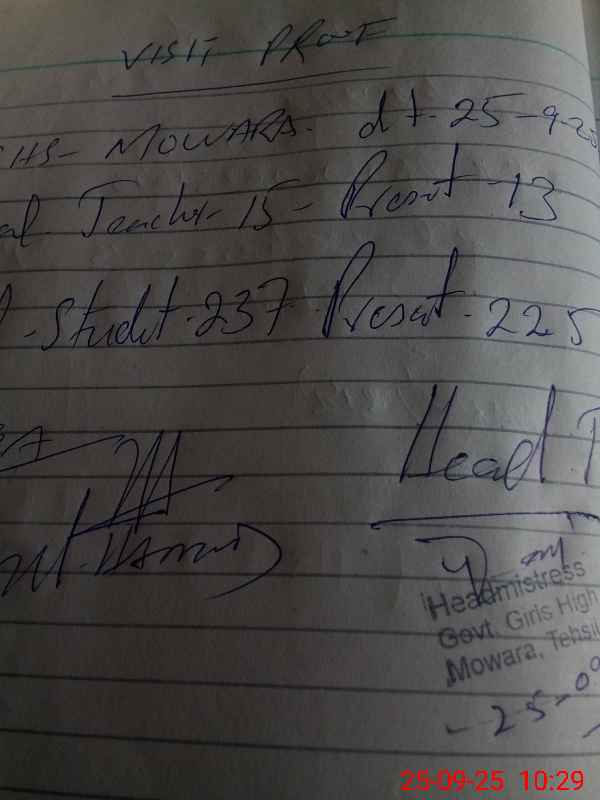 VISIT PROOF
HS- MOWARA. dt. 25-9-25
al. Teacher-15- Present-13
-Student-237 Present-225
Head T
Headmistress
Govt. Girls High
Mowara, Tehsil
-25-09
25-09-25 10:29